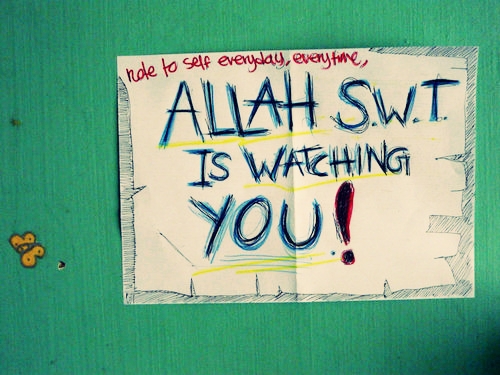 note to self everyday, everytime,
ALLAH S.W.T.
IS WATCHING
YOU!